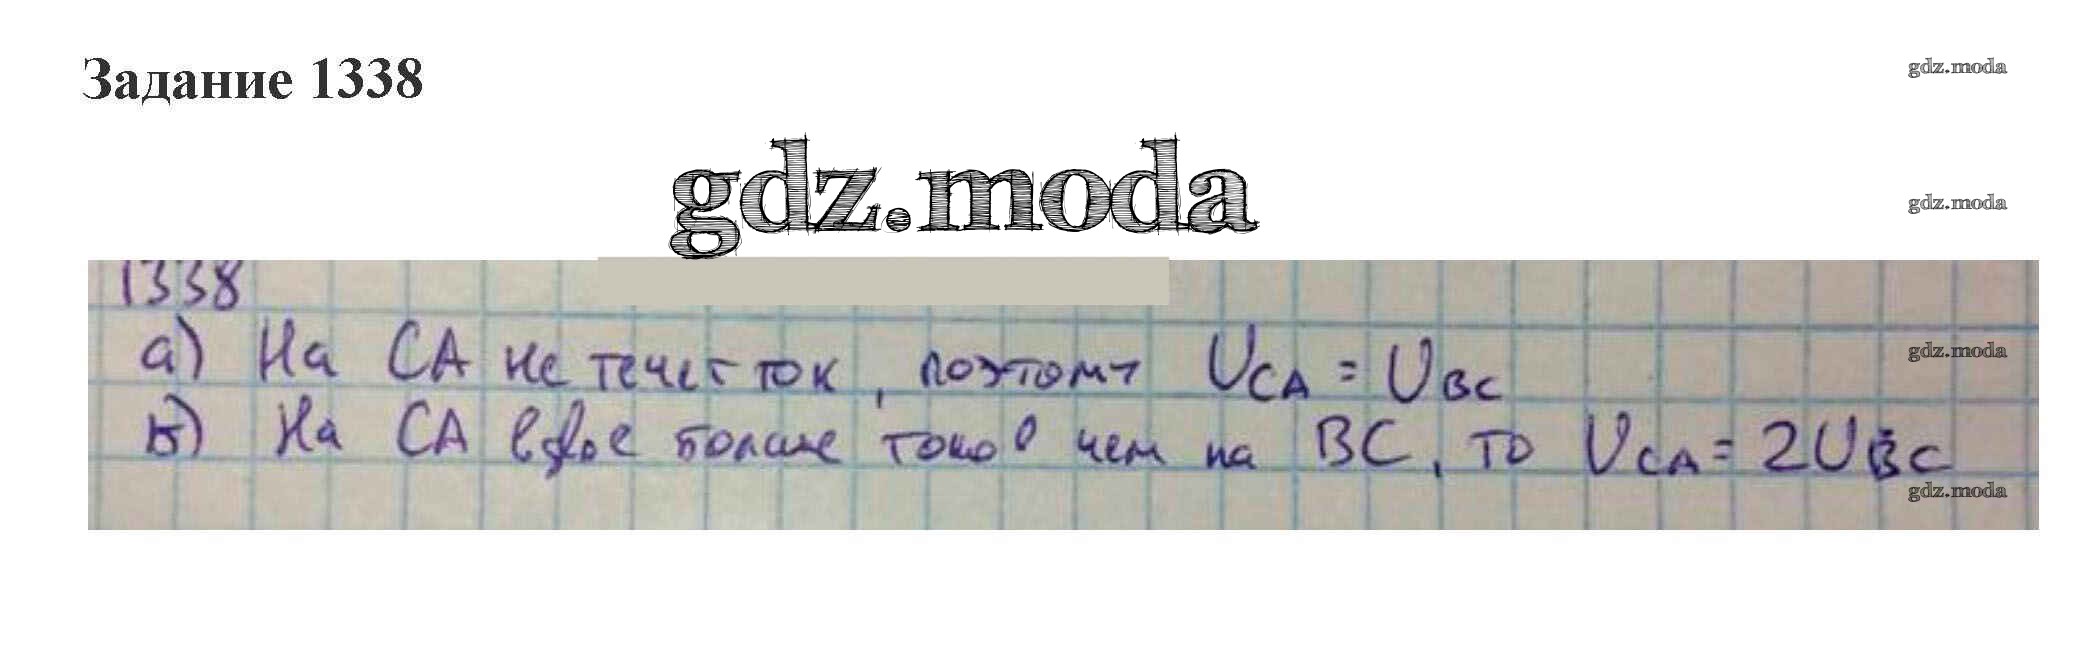 Задание 1338
gdz.moda
gdz.moda
gdz.moda
1338
а) На СА не течет ток, поэтому UCA = UBC
gdz.moda
б) На СА вдвое больше токов чем на ВС, то UCA = 2UBC
gdz.moda